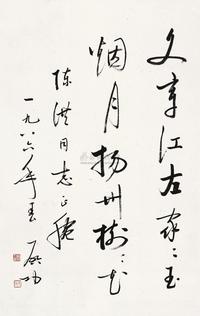 文章江左家々玉
烟月扬州树々花
陈洪同志正腕
一九八六年春 启功